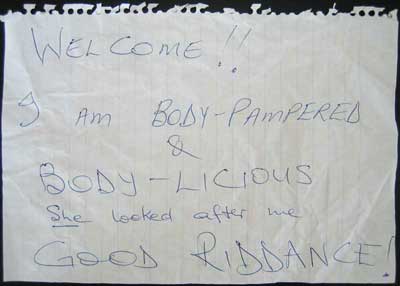 WELCOME!!
I AM BODY-PAMPERED
&
BODY-LICIOUS
She looked after me
GOOD RIDDANCE!